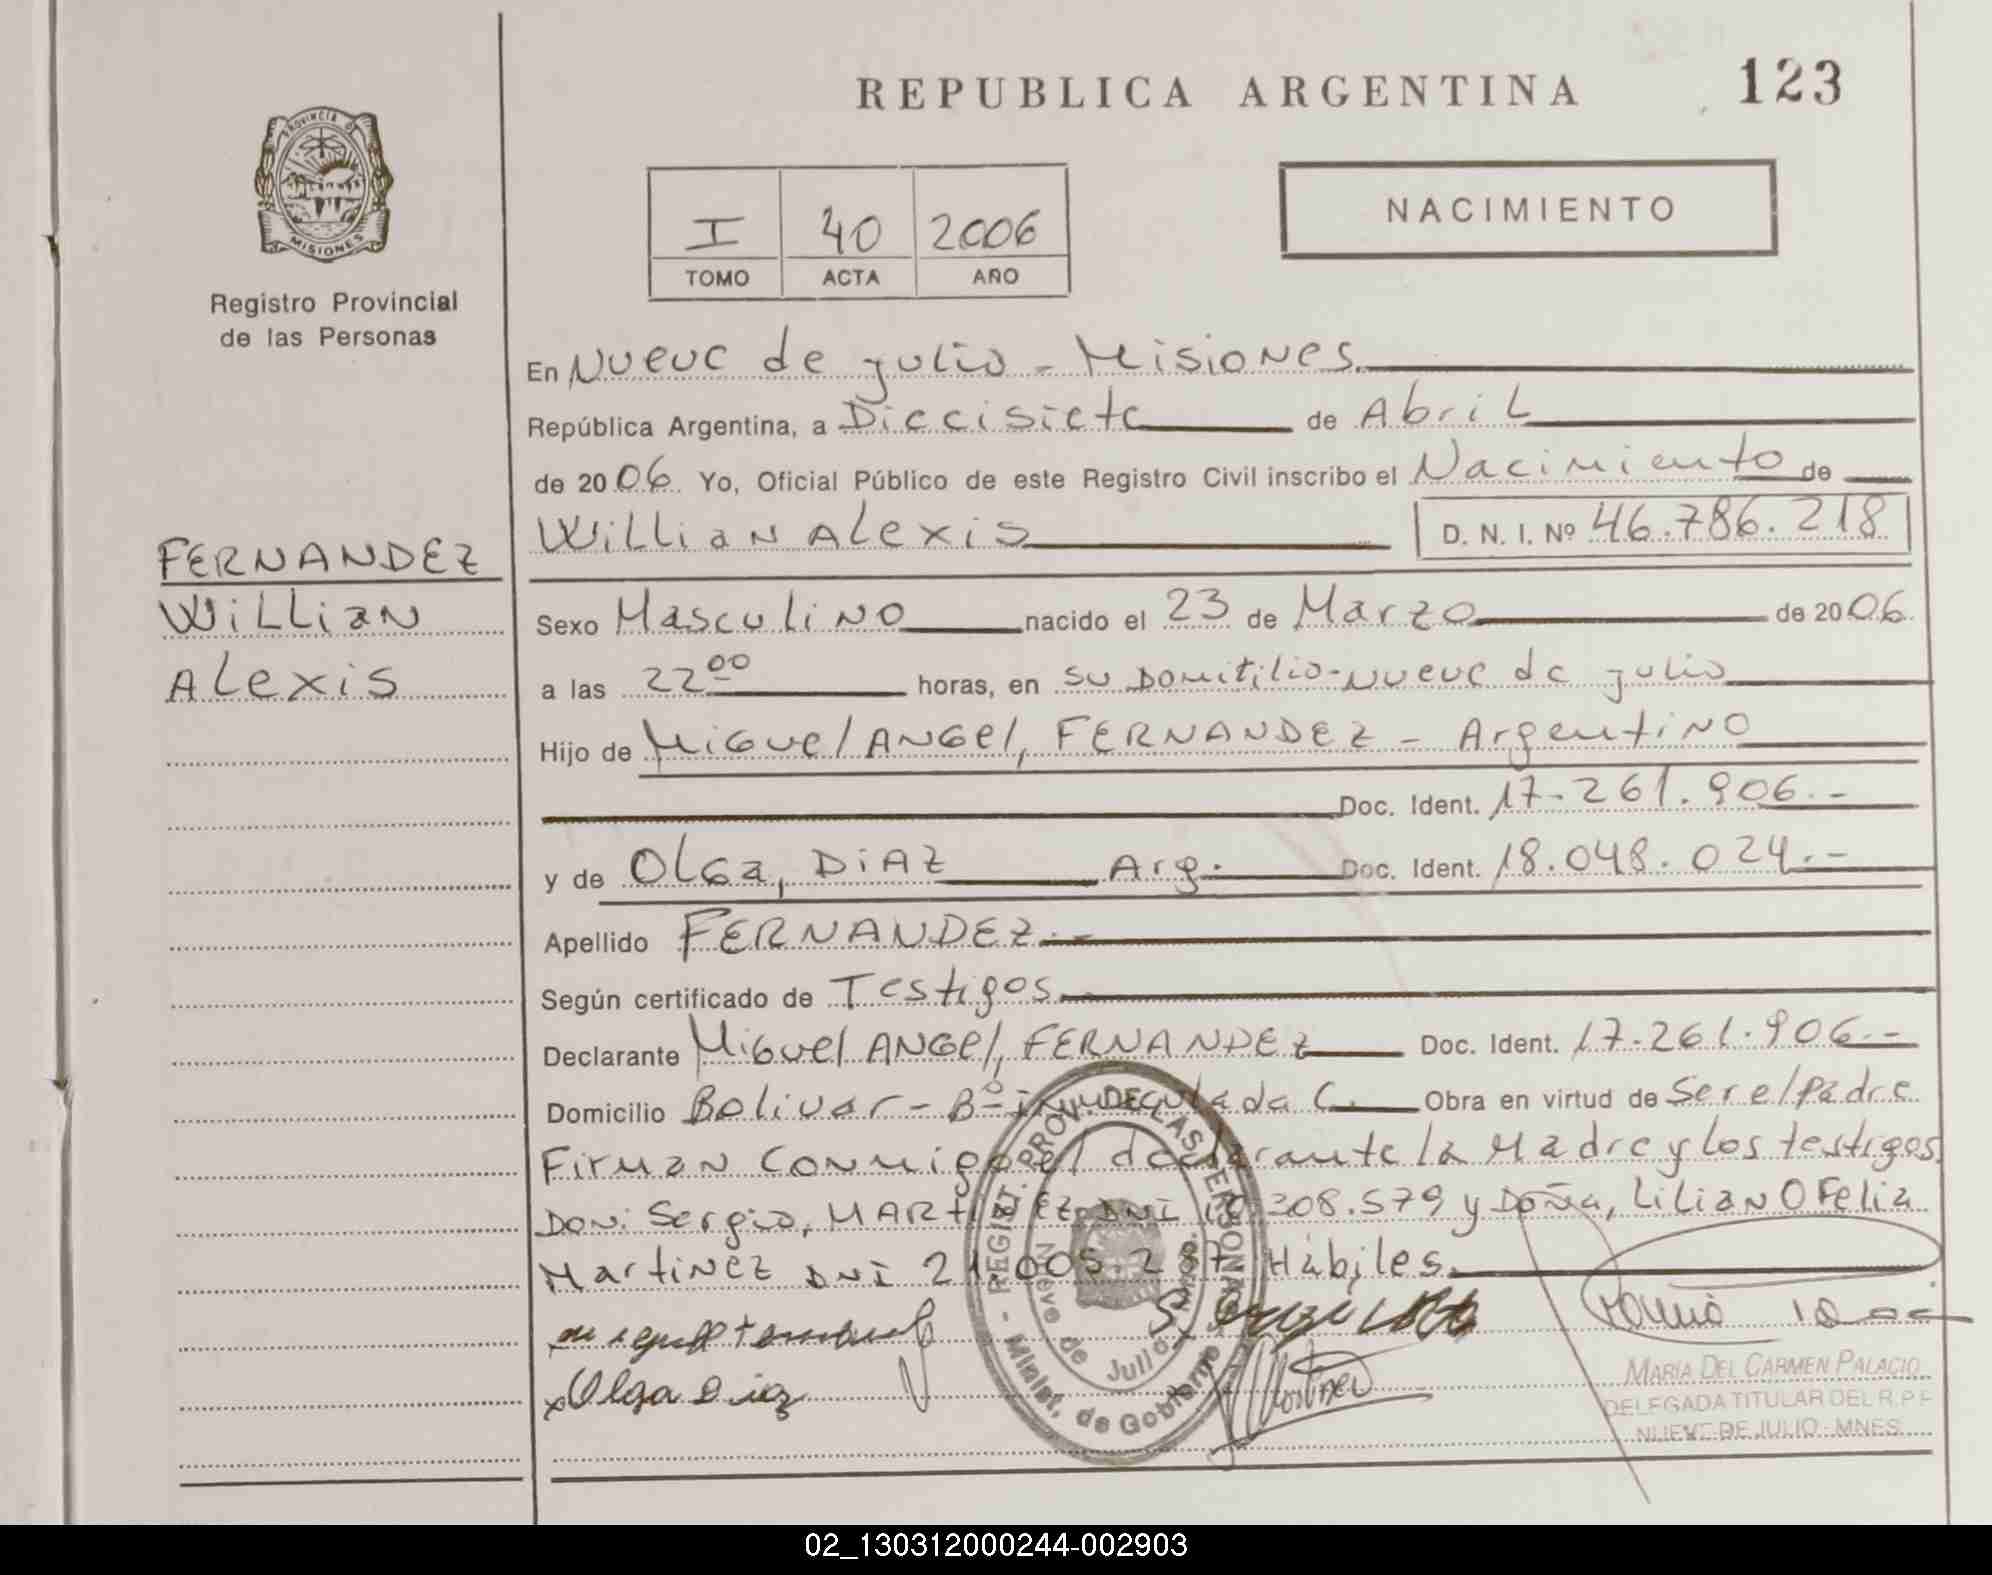 REPUBLICA ARGENTINA 123
PROVINCIA DE
MISIONES
Registro Provincial
de las Personas
I 40 2006
TOMO ACTA AÑO
NACIMIENTO
En Nueve de julio - Misiones
República Argentina, a Diecisiete de Abril
de 2006 Yo, Oficial Público de este Registro Civil inscribo el Nacimiento de
Willian Alexis D. N. I. Nº 46.786.218
FERNANDEZ
Willian
Alexis
Sexo Masculino nacido el 23 de Marzo de 2006
a las 22 00 horas, en su Domitilio - Nueve de julio
Hijo de Miguel ANGel, FERNANDEZ - Argentino
Doc. Ident. 17.261.906.-
y de Olga, DIAZ Arg. Doc. Ident. 18.048.024.-
Apellido FERNANDEZ.-
Según certificado de Testigos
Declarante Miguel ANGel, FERNANDEZ Doc. Ident. 17.261.906.-
Domicilio Bolivar - Bº C. Obra en virtud de Ser el Padre
Firman conmigo el declarante la Madre y los testigos
Don. Sergio, MARTINEZ DNI 308.579 y Doña, Lilian Ofelia
Martinez DNI 21.005.287 Hábiles
Olga Diaz
REGIST. PROV. DE LAS PERSONAS
Nueve de Julio
Minist. de Gobierno
MARIA DEL CARMEN PALACIO
DELEGADA TITULAR DEL R.P.P
NUEVE DE JULIO - MNES
02_130312000244-002903